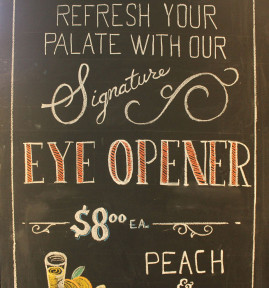 REFRESH YOUR
PALATE WITH OUR
Signature
EYE OPENER
$800 EA.
PEACH
&